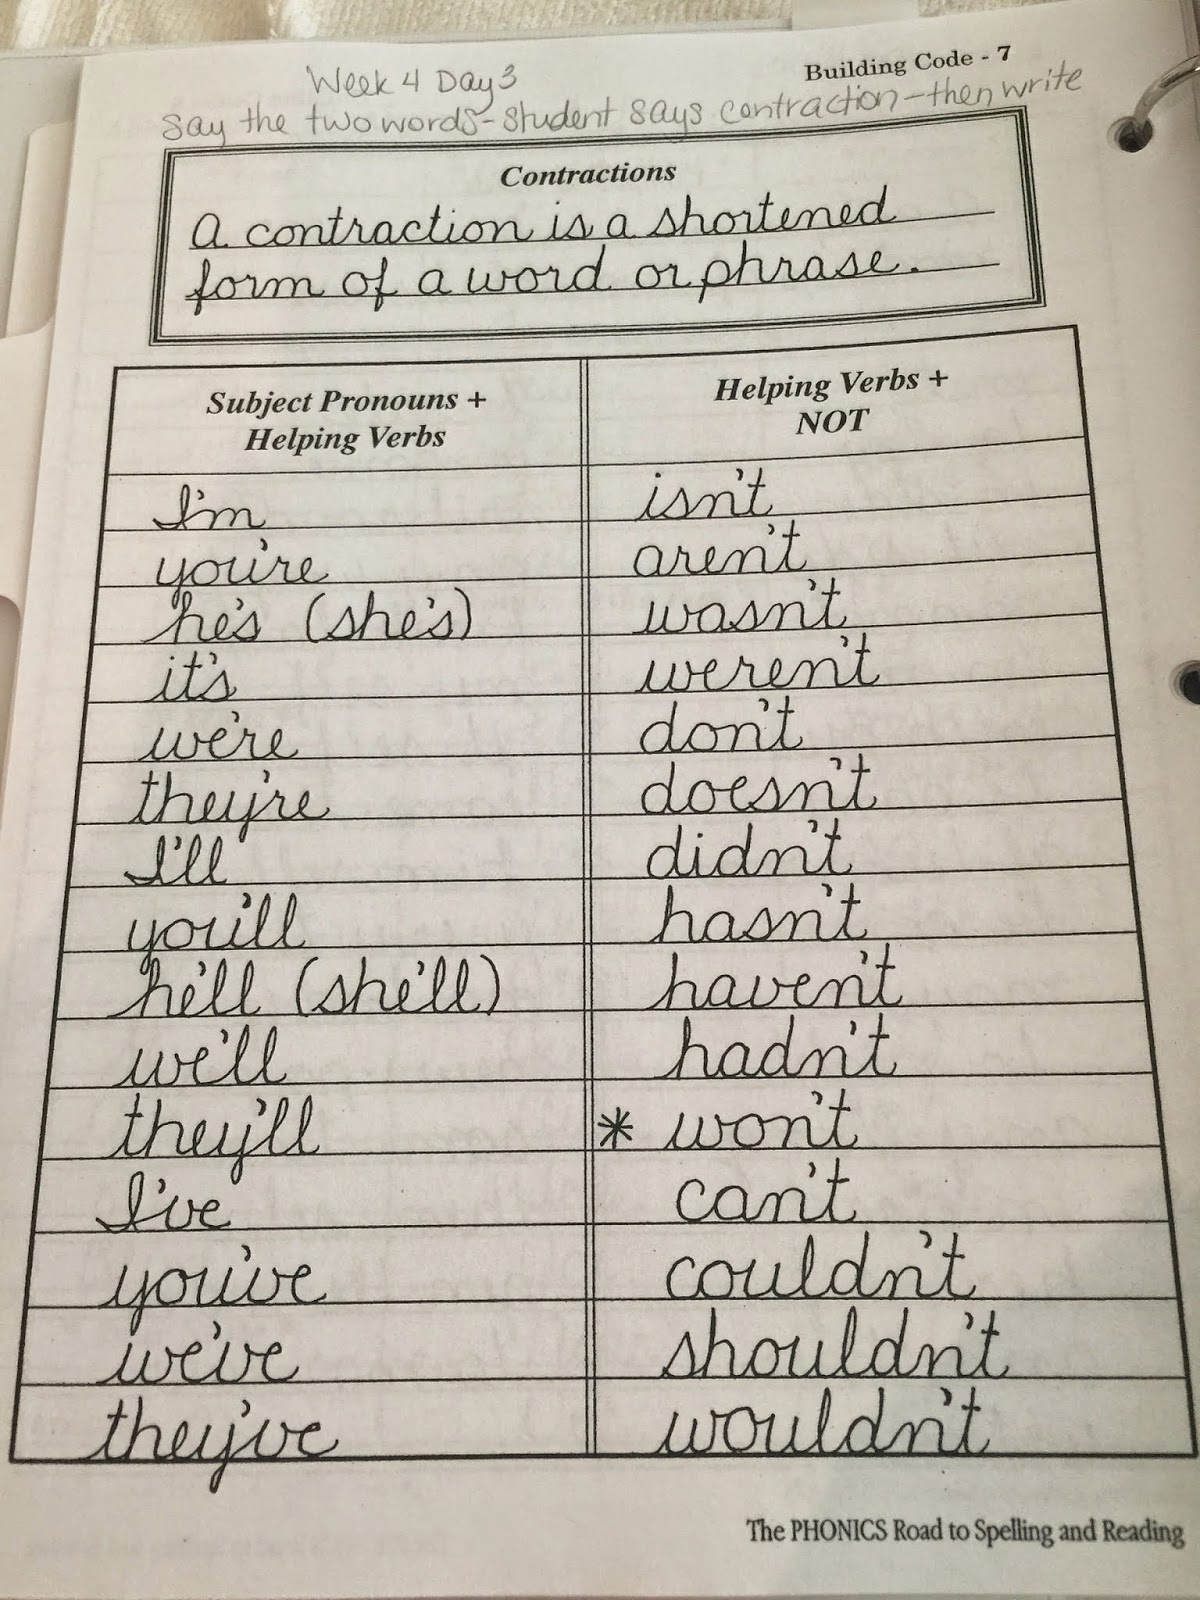 Building Code - 7
Week 4 Day 3
Say the two words - student says contraction - then write
Contractions
A contraction is a shortened
form of a word or phrase.
Subject Pronouns +
Helping Verbs
Helping Verbs +
NOT
I'm
isn't
you're
aren't
he's (she's)
wasn't
it's
weren't
we're
don't
they're
doesn't
I'll
didn't
you'll
hasn't
he'll (she'll)
haven't
we'll
hadn't
they'll
* won't
I've
can't
you've
couldn't
we've
shouldn't
they've
wouldn't
The PHONICS Road to Spelling and Reading